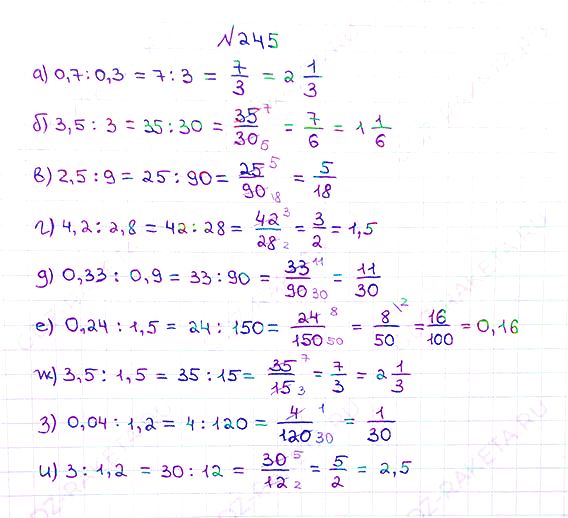 №245
а) 0,7 : 0,3 = 7 : 3 = 7/3 = 2 1/3
б) 3,5 : 3 = 35 : 30 = 35⁷/30₆ = 7/6 = 1 1/6
в) 2,5 : 9 = 25 : 90 = 25⁵/90₁₈ = 5/18
г) 4,2 : 2,8 = 42 : 28 = 42³/28₂ = 3/2 = 1,5
д) 0,33 : 0,9 = 33 : 90 = 33¹¹/90₃₀ = 11/30
е) 0,24 : 1,5 = 24 : 150 = 24⁸/150₅₀ = 8\²/50 = 16/100 = 0,16
ж) 3,5 : 1,5 = 35 : 15 = 35⁷/15₃ = 7/3 = 2 1/3
з) 0,04 : 1,2 = 4 : 120 = 4¹/120₃₀ = 1/30
и) 3 : 1,2 = 30 : 12 = 30⁵/12₂ = 5/2 = 2,5